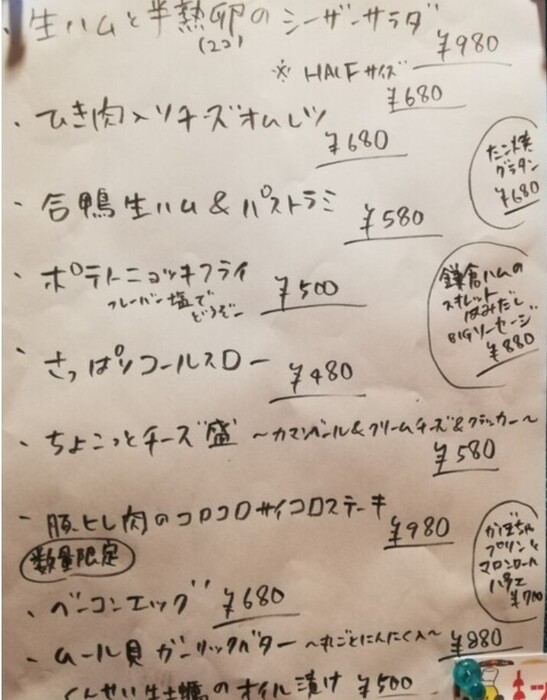 ・生ハムと半熟卵のシーザーサラダ
(2コ)
¥980
※ HALFサイズ
¥680
・ひき肉入りチーズオムレツ
¥680
たこ焼
グラタン
¥680
・合鴨生ハム&パストラミ
¥580
・ポテトニョッキフライ
フレーバー塩で
どうぞー
¥500
鎌倉ハムの
スキレット
はみだし
BIGソーセージ
¥880
・さっぱりコールスロー
¥480
・ちょこっとチーズ盛 〜カマンベール&クリームチーズ&クラッカー〜
¥580
・豚ヒレ肉のコロコロサイコロステーキ
¥980
数量限定
かぼちゃ
プリン&
マロンロール
パフェ
¥700
・ベーコンエッグ ¥680
・ムール貝 ガーリックバター 〜丸ごとにんにく入〜 ¥880
くんせい生牡蠣のオイル漬け ¥500